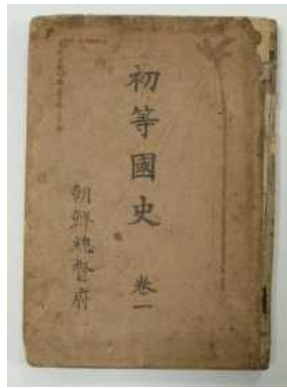 初等國史 卷一
朝鮮總督府